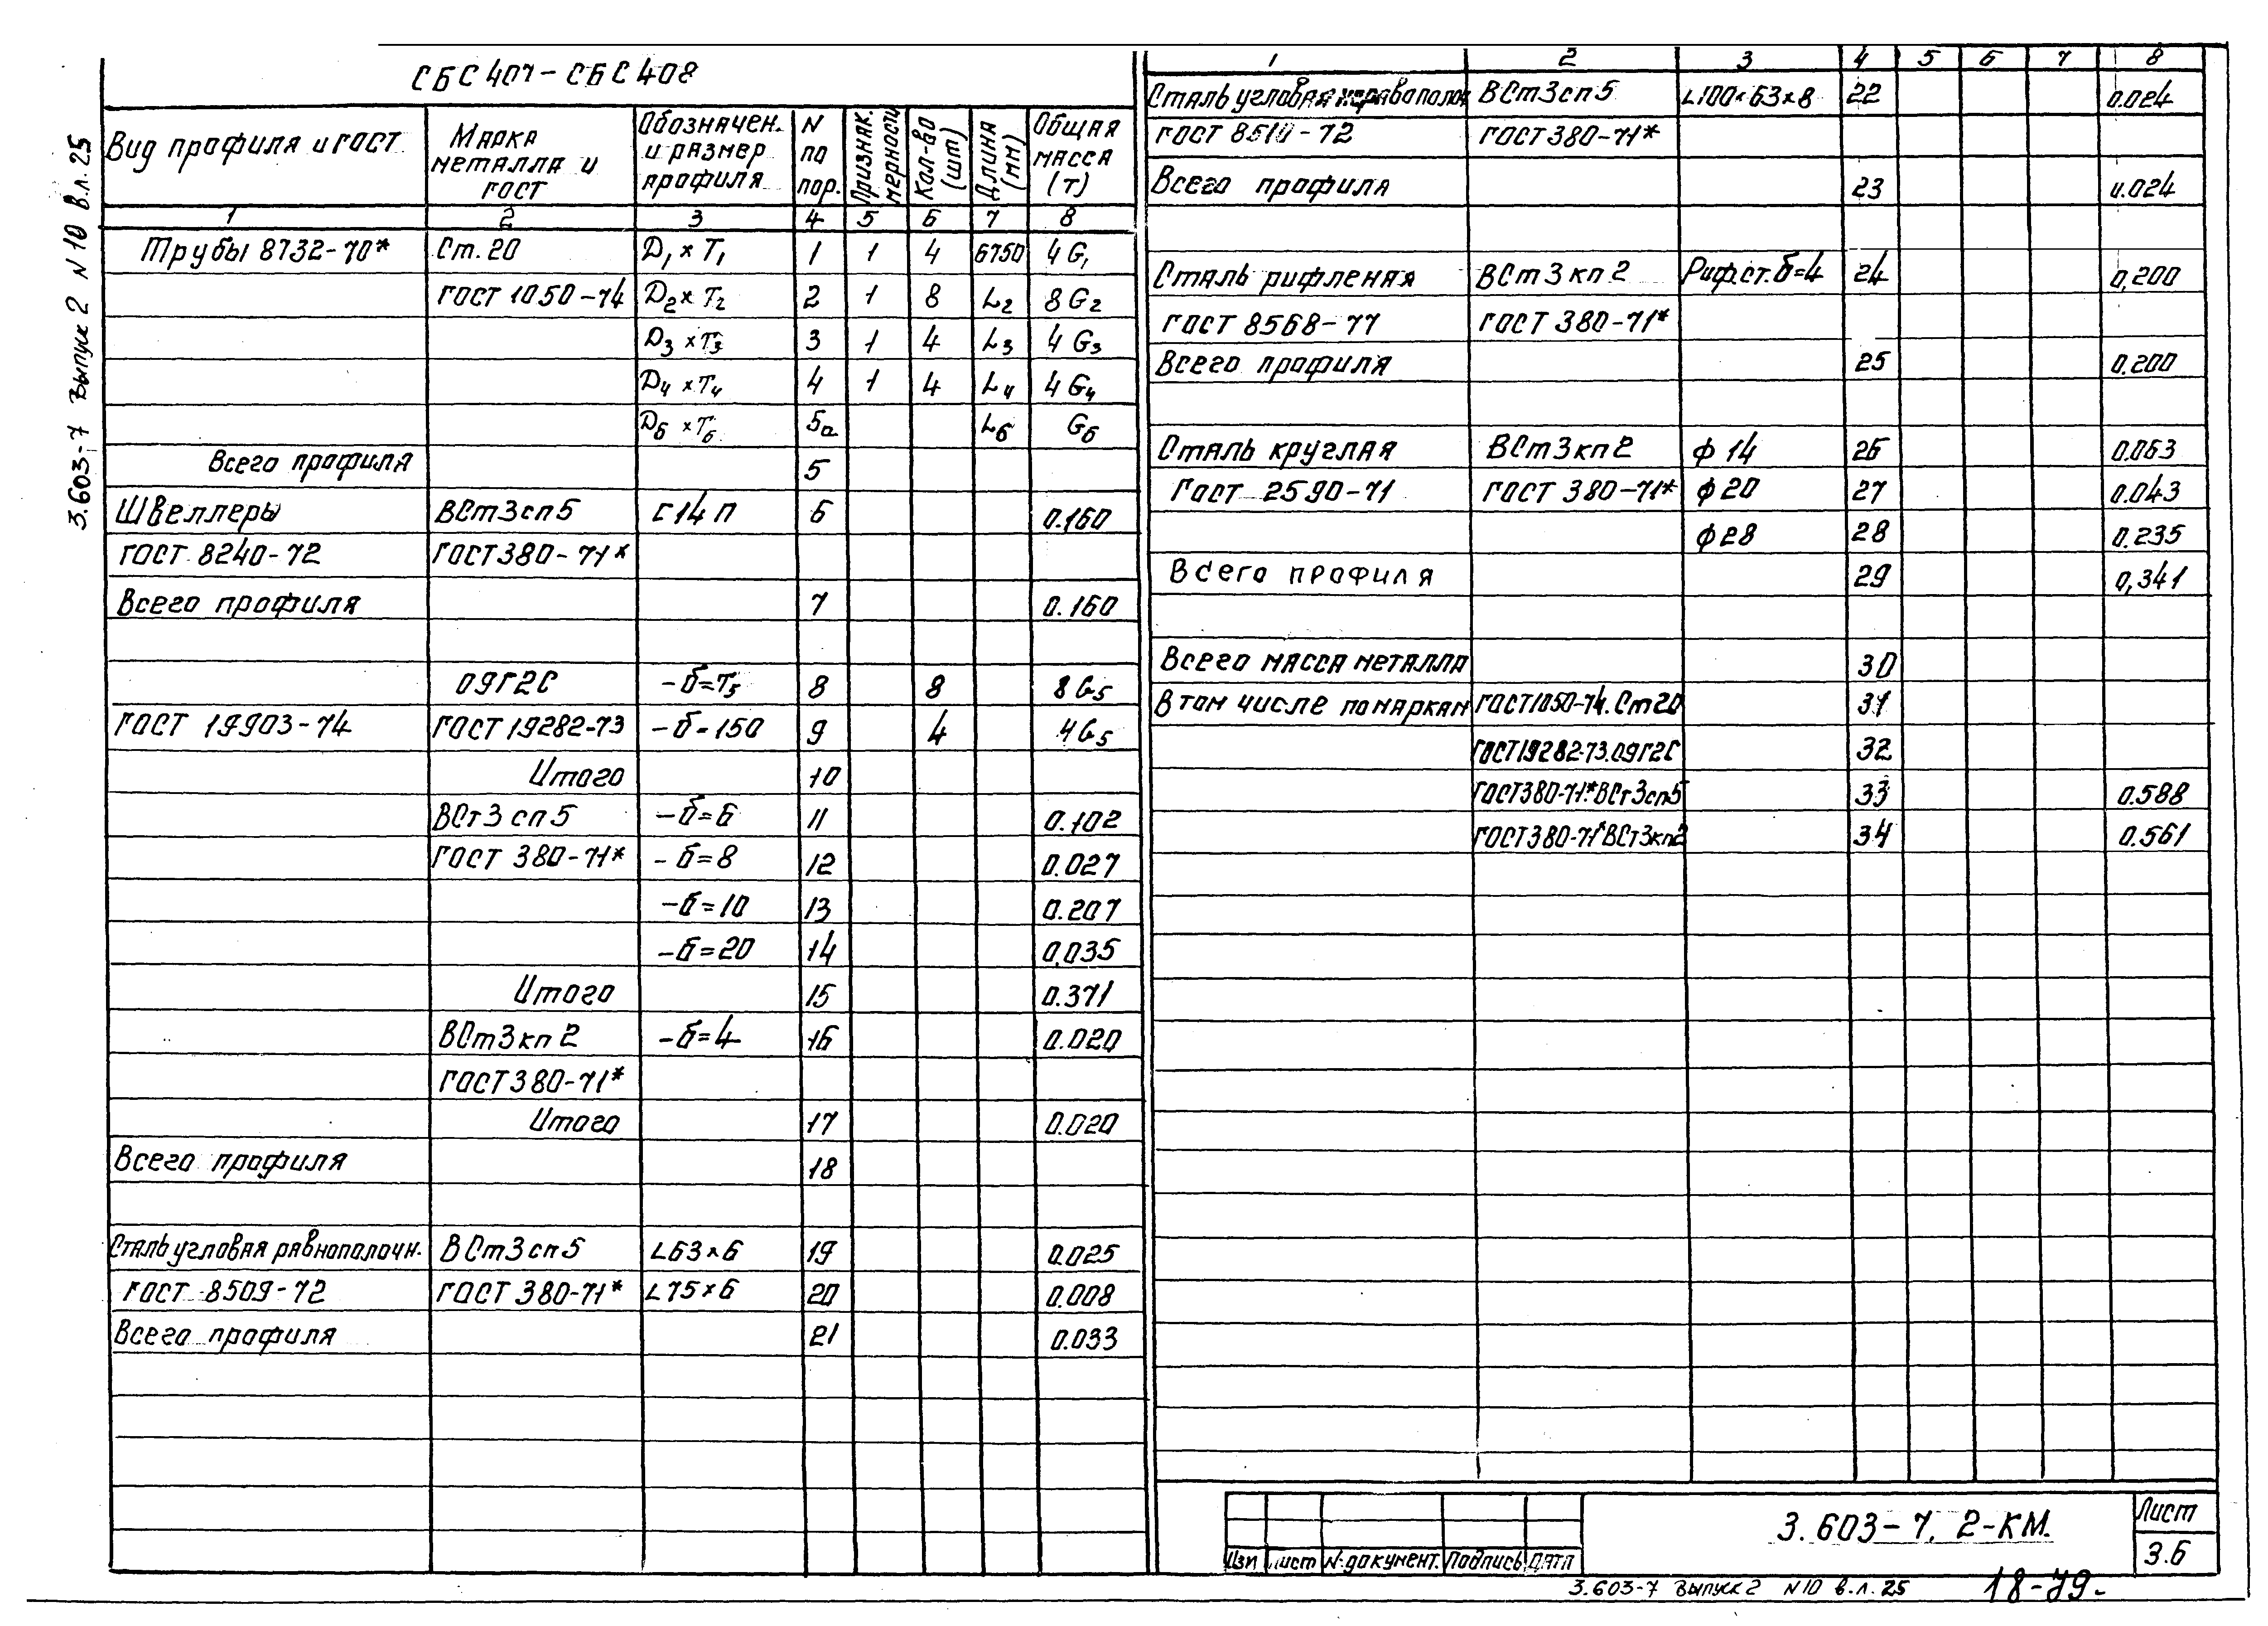 СБС 401 - СБС 408
3.603-7 выпуск 2 N 10 в.л. 25
Вид профиля и ГОСТ | Марка металла и ГОСТ | Обозначен. и размер профиля | N по пор. | Признак. мерности | Кол-во (шт) | Длина (мм) | Общая масса (т)
1 2 3 4 5 6 7 8
Трубы 8732-70* Ст. 20 D1 × T1 1 1 4 6750 4 G1
ГОСТ 1050-74 D2 × T2 2 1 8 L2 8 G2
D3 × T3 3 1 4 L3 4 G3
D4 × T4 4 1 4 L4 4 G4
D6 × T6 5а L6 G6
Всего профиля 5
Швеллеры ВСт3сп5 С14П 6 0.160
ГОСТ 8240-72 ГОСТ 380-71*
Всего профиля 7 0.160
09Г2С -б=T5 8 8 8 G5
ГОСТ 19903-74 ГОСТ 19282-73 -б-150 9 4 4 G5
Итого 10
ВСт3сп5 -б=6 11 0.102
ГОСТ 380-71* -б=8 12 0.027
-б=10 13 0.207
-б=20 14 0.035
Итого 15 0.371
ВСт3кп2 -б=4 16 0.020
ГОСТ 380-71*
Итого 17 0.020
Всего профиля 18
Сталь угловая равнополочн. ВСт3сп5 L63×6 19 0.025
ГОСТ 8509-72 ГОСТ 380-71* L75×6 20 0.008
Всего профиля 21 0.033
1 2 3 4 5 6 7 8
Сталь угловая неравнополоч ВСт3сп5 L100×63×8 22 0.024
ГОСТ 8510-72 ГОСТ 380-71*
Всего профиля 23 0.024
Сталь рифленая ВСт3кп2 Риф.ст.б=4 24 0,200
ГОСТ 8568-77 ГОСТ 380-71*
Всего профиля 25 0.200
Сталь круглая ВСт3кп2 ф14 26 0.063
ГОСТ 2590-71 ГОСТ 380-71* ф20 27 0.043
ф28 28 0.235
Всего профиля 29 0,341
Всего масса металла 30
В том числе по маркам ГОСТ1050-74.Ст20 31
ГОСТ19282-73.09Г2С 32
ГОСТ380-71*ВСт3сп5 33 0.588
ГОСТ380-71*ВСт3кп2 34 0.561
3.603-7. 2-КМ.
Лист
3.6
Изм Лист N документ. Подпись Дата
3.603-7 выпуск 2 N10 в.л. 25
18-79-